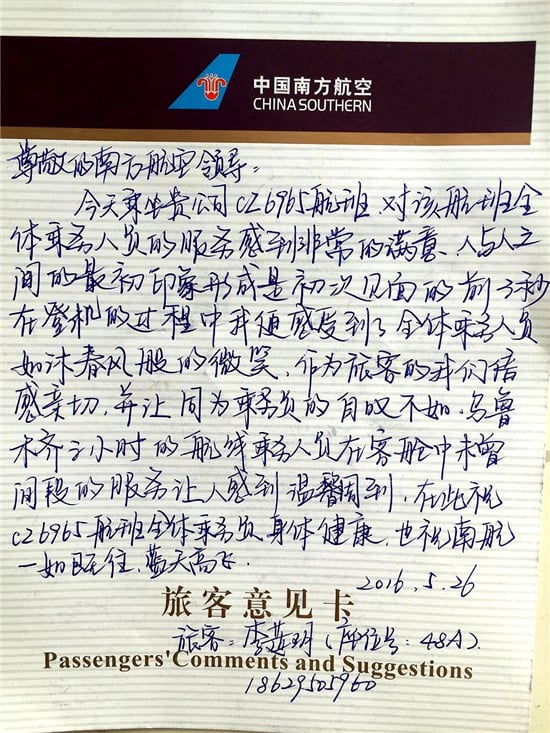 中国南方航空
CHINA SOUTHERN
尊敬的南方航空领导：
今天乘坐贵公司CZ6965航班，对该航班全
体乘务人员的服务感到非常的满意、人与人之
间的最初印象形成是初次见面的前3秒
在登机的过程中我便感受到了全体乘务人员
如沐春风般的微笑，作为旅客的我们倍
感亲切，并让同为乘务员的自叹不如，乌鲁
木齐三小时的航线乘务人员在客舱中未曾
间段的服务让人感到温馨周到，在此祝
CZ6965航班全体乘务员，身体健康，也祝南航
一如既往，蓝天高飞．
2016.5.26
旅客意见卡
旅客：李 玥（座位号：48A）．
Passengers' Comments and Suggestions
18629505960